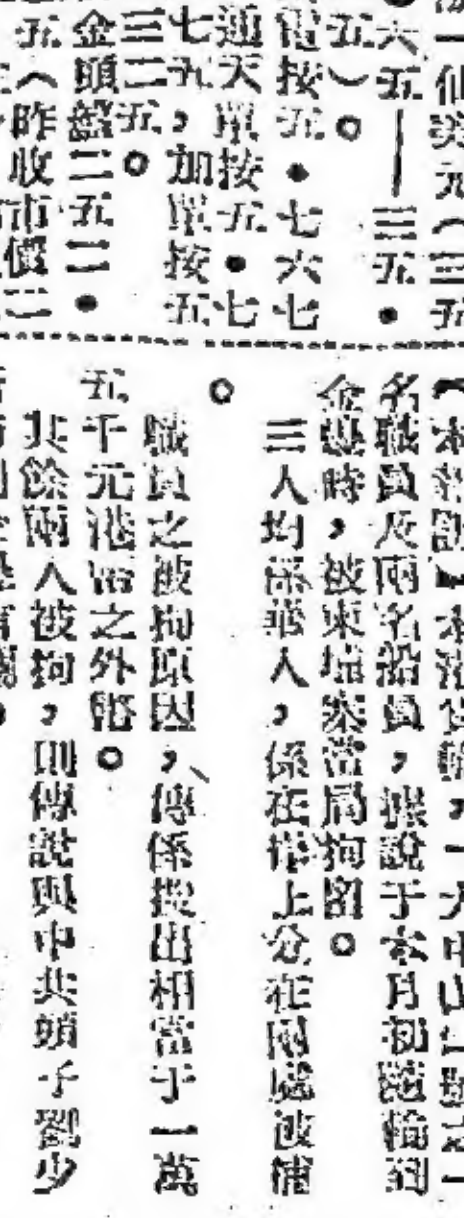 漲一仙美元(三五
六五——三五●
五)。
電按五●七六七
通天單按五●七
七五,加單按五
三二五。
金頭盤二五二●
五(昨收市價二
【本報訊】本港
名職員及兩名船員,據說于本月初隨輪到
金邊時,被柬埔寨當局拘留。
三人均係華人,係在岸上分在兩處被捕
。
職員之被拘原因,傳係搜出相當于一萬
五千元港幣之外幣。
其餘兩人被拘,則傳說與中共頭子劉少